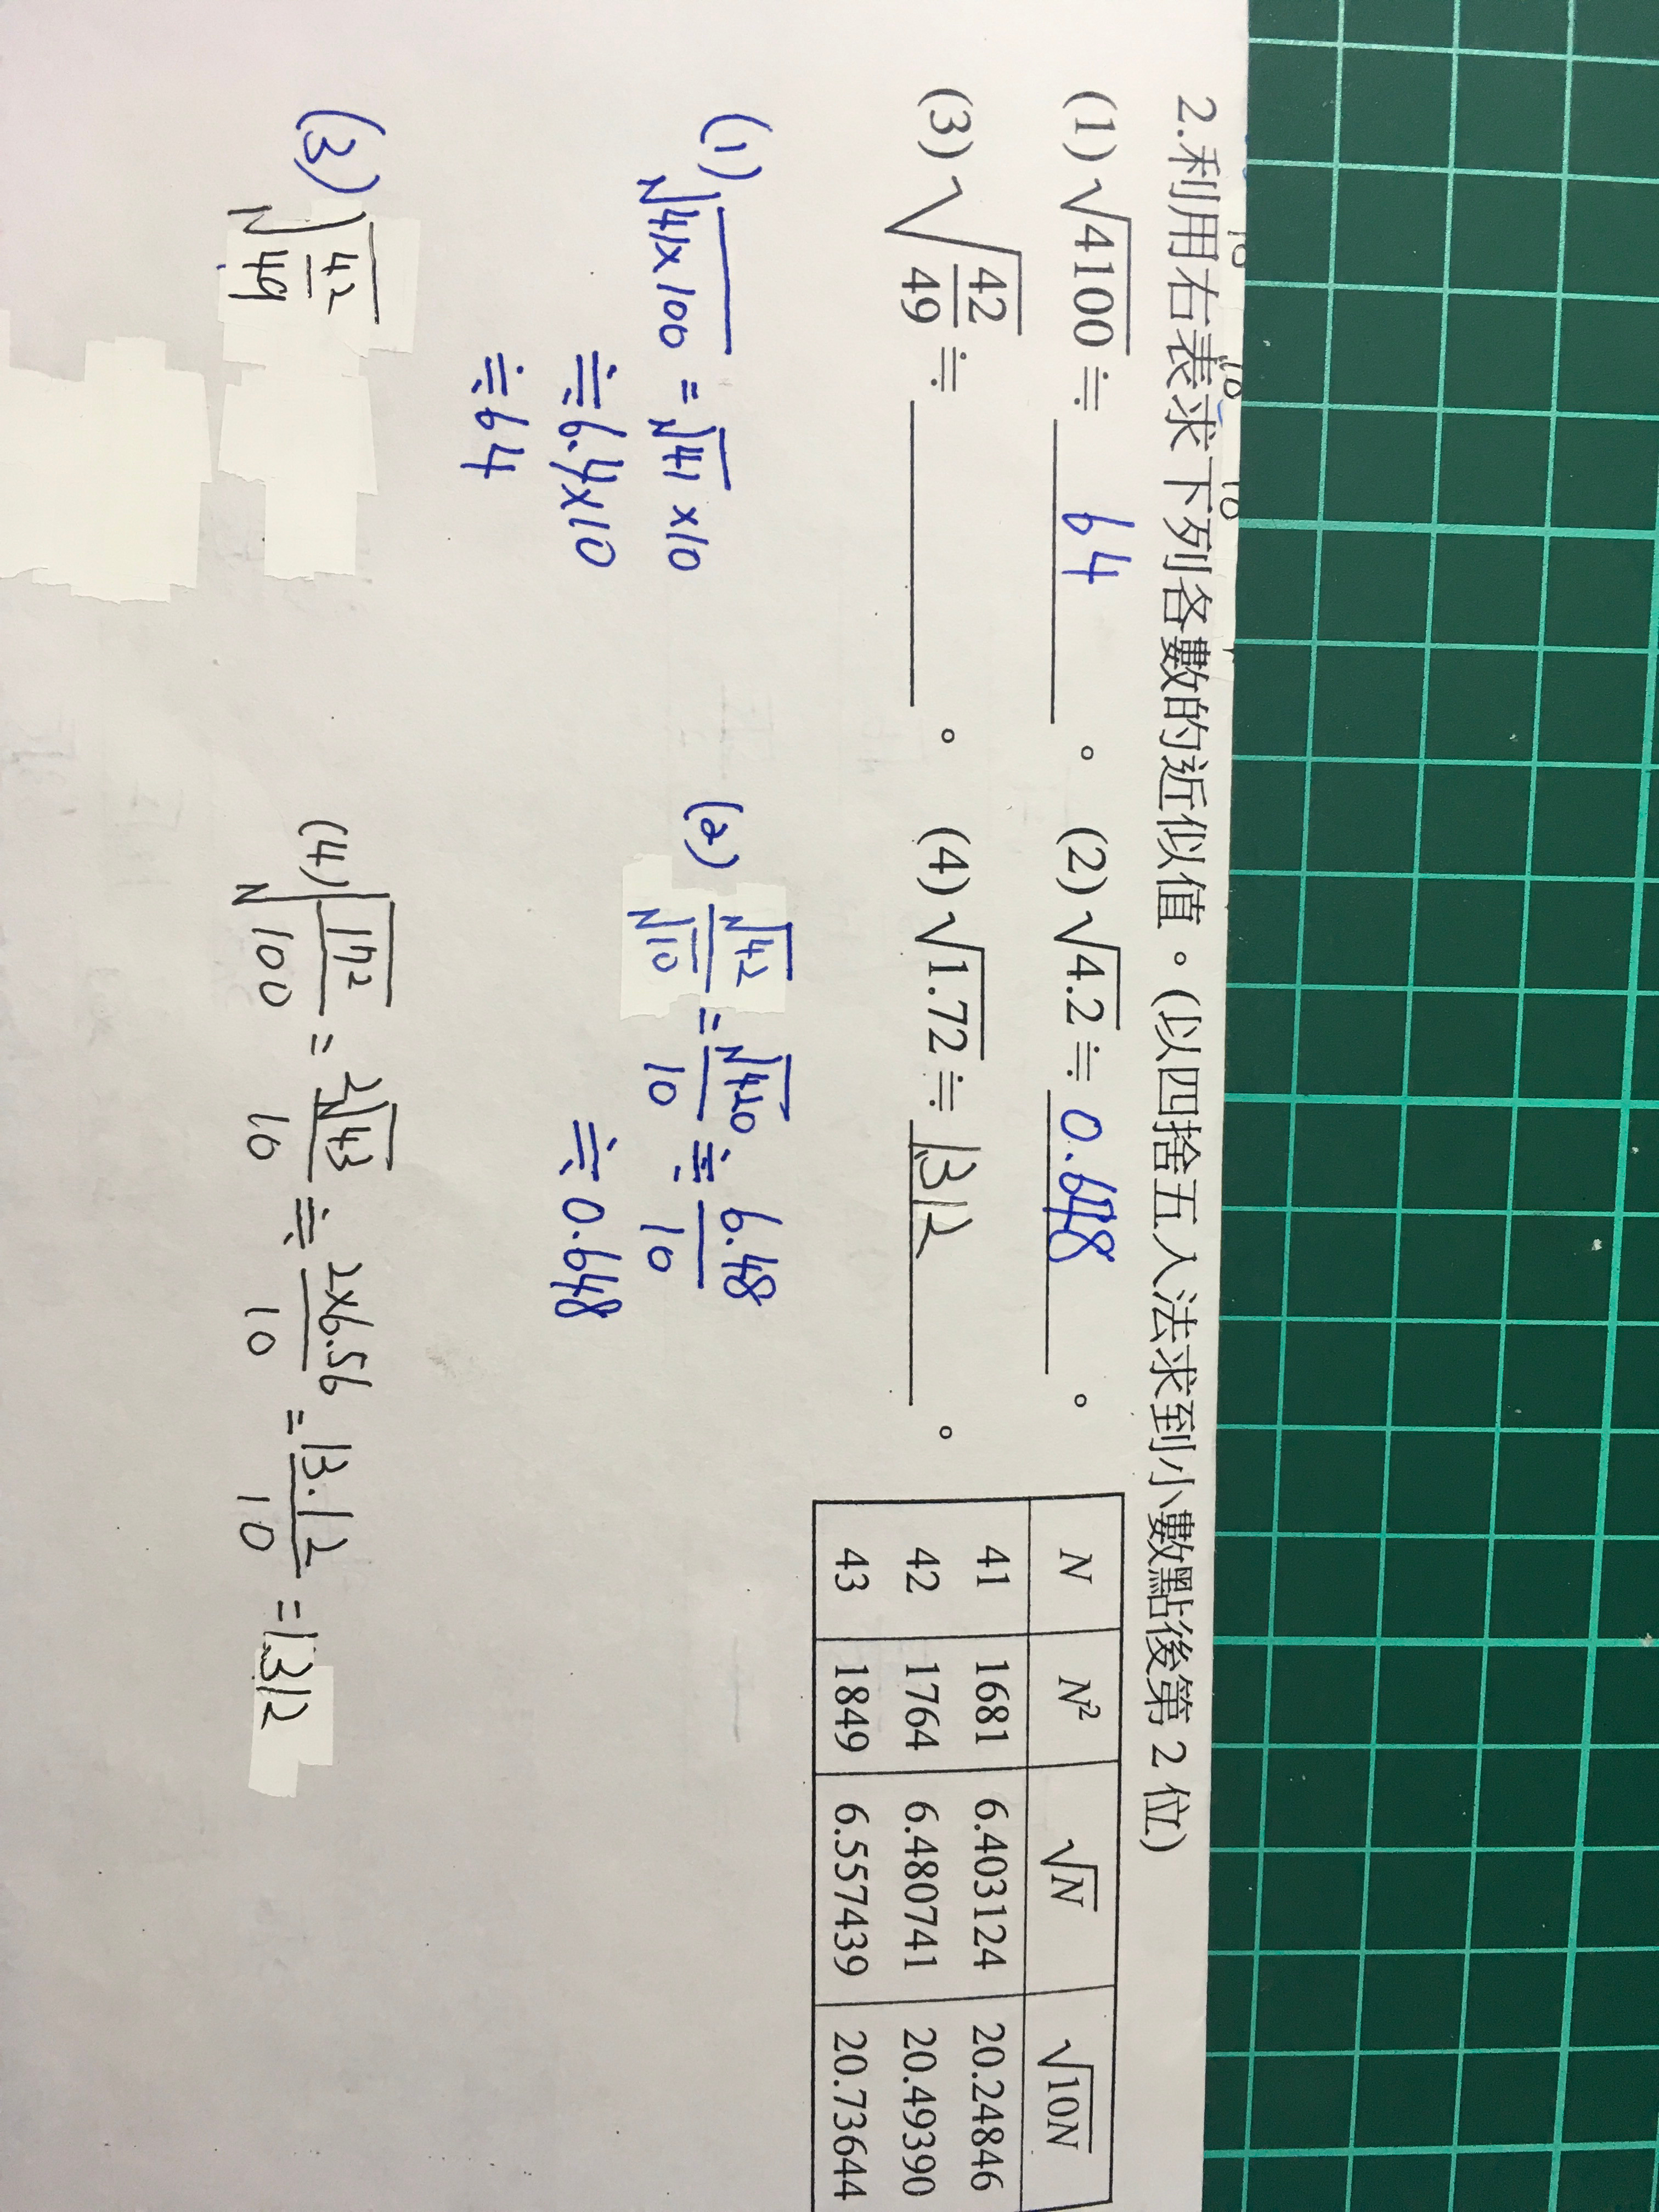 2.利用右表求下列各數的近似值。(以四捨五入法求到小數點後第 2 位)
(1) √4100 ≒ 64 。 (2) √4.2 ≒ 0.648 。
(3) √(42/49) ≒ ______ 。 (4) √1.72 ≒ 1312 。
N N² √N √10N
41 1681 6.403124 20.24846
42 1764 6.480741 20.49390
43 1849 6.557439 20.73644
(1) √41×100 = √41 ×10
≒ 6.4×10
≒ 64
(2) √42/√10 = √420/10 ≒ 6.48/10
≒ 0.648
(3) √(42/49)
(4) √(172/100) = 2√43/10 ≒ 2×6.56/10 = 13.12/10 = 1312